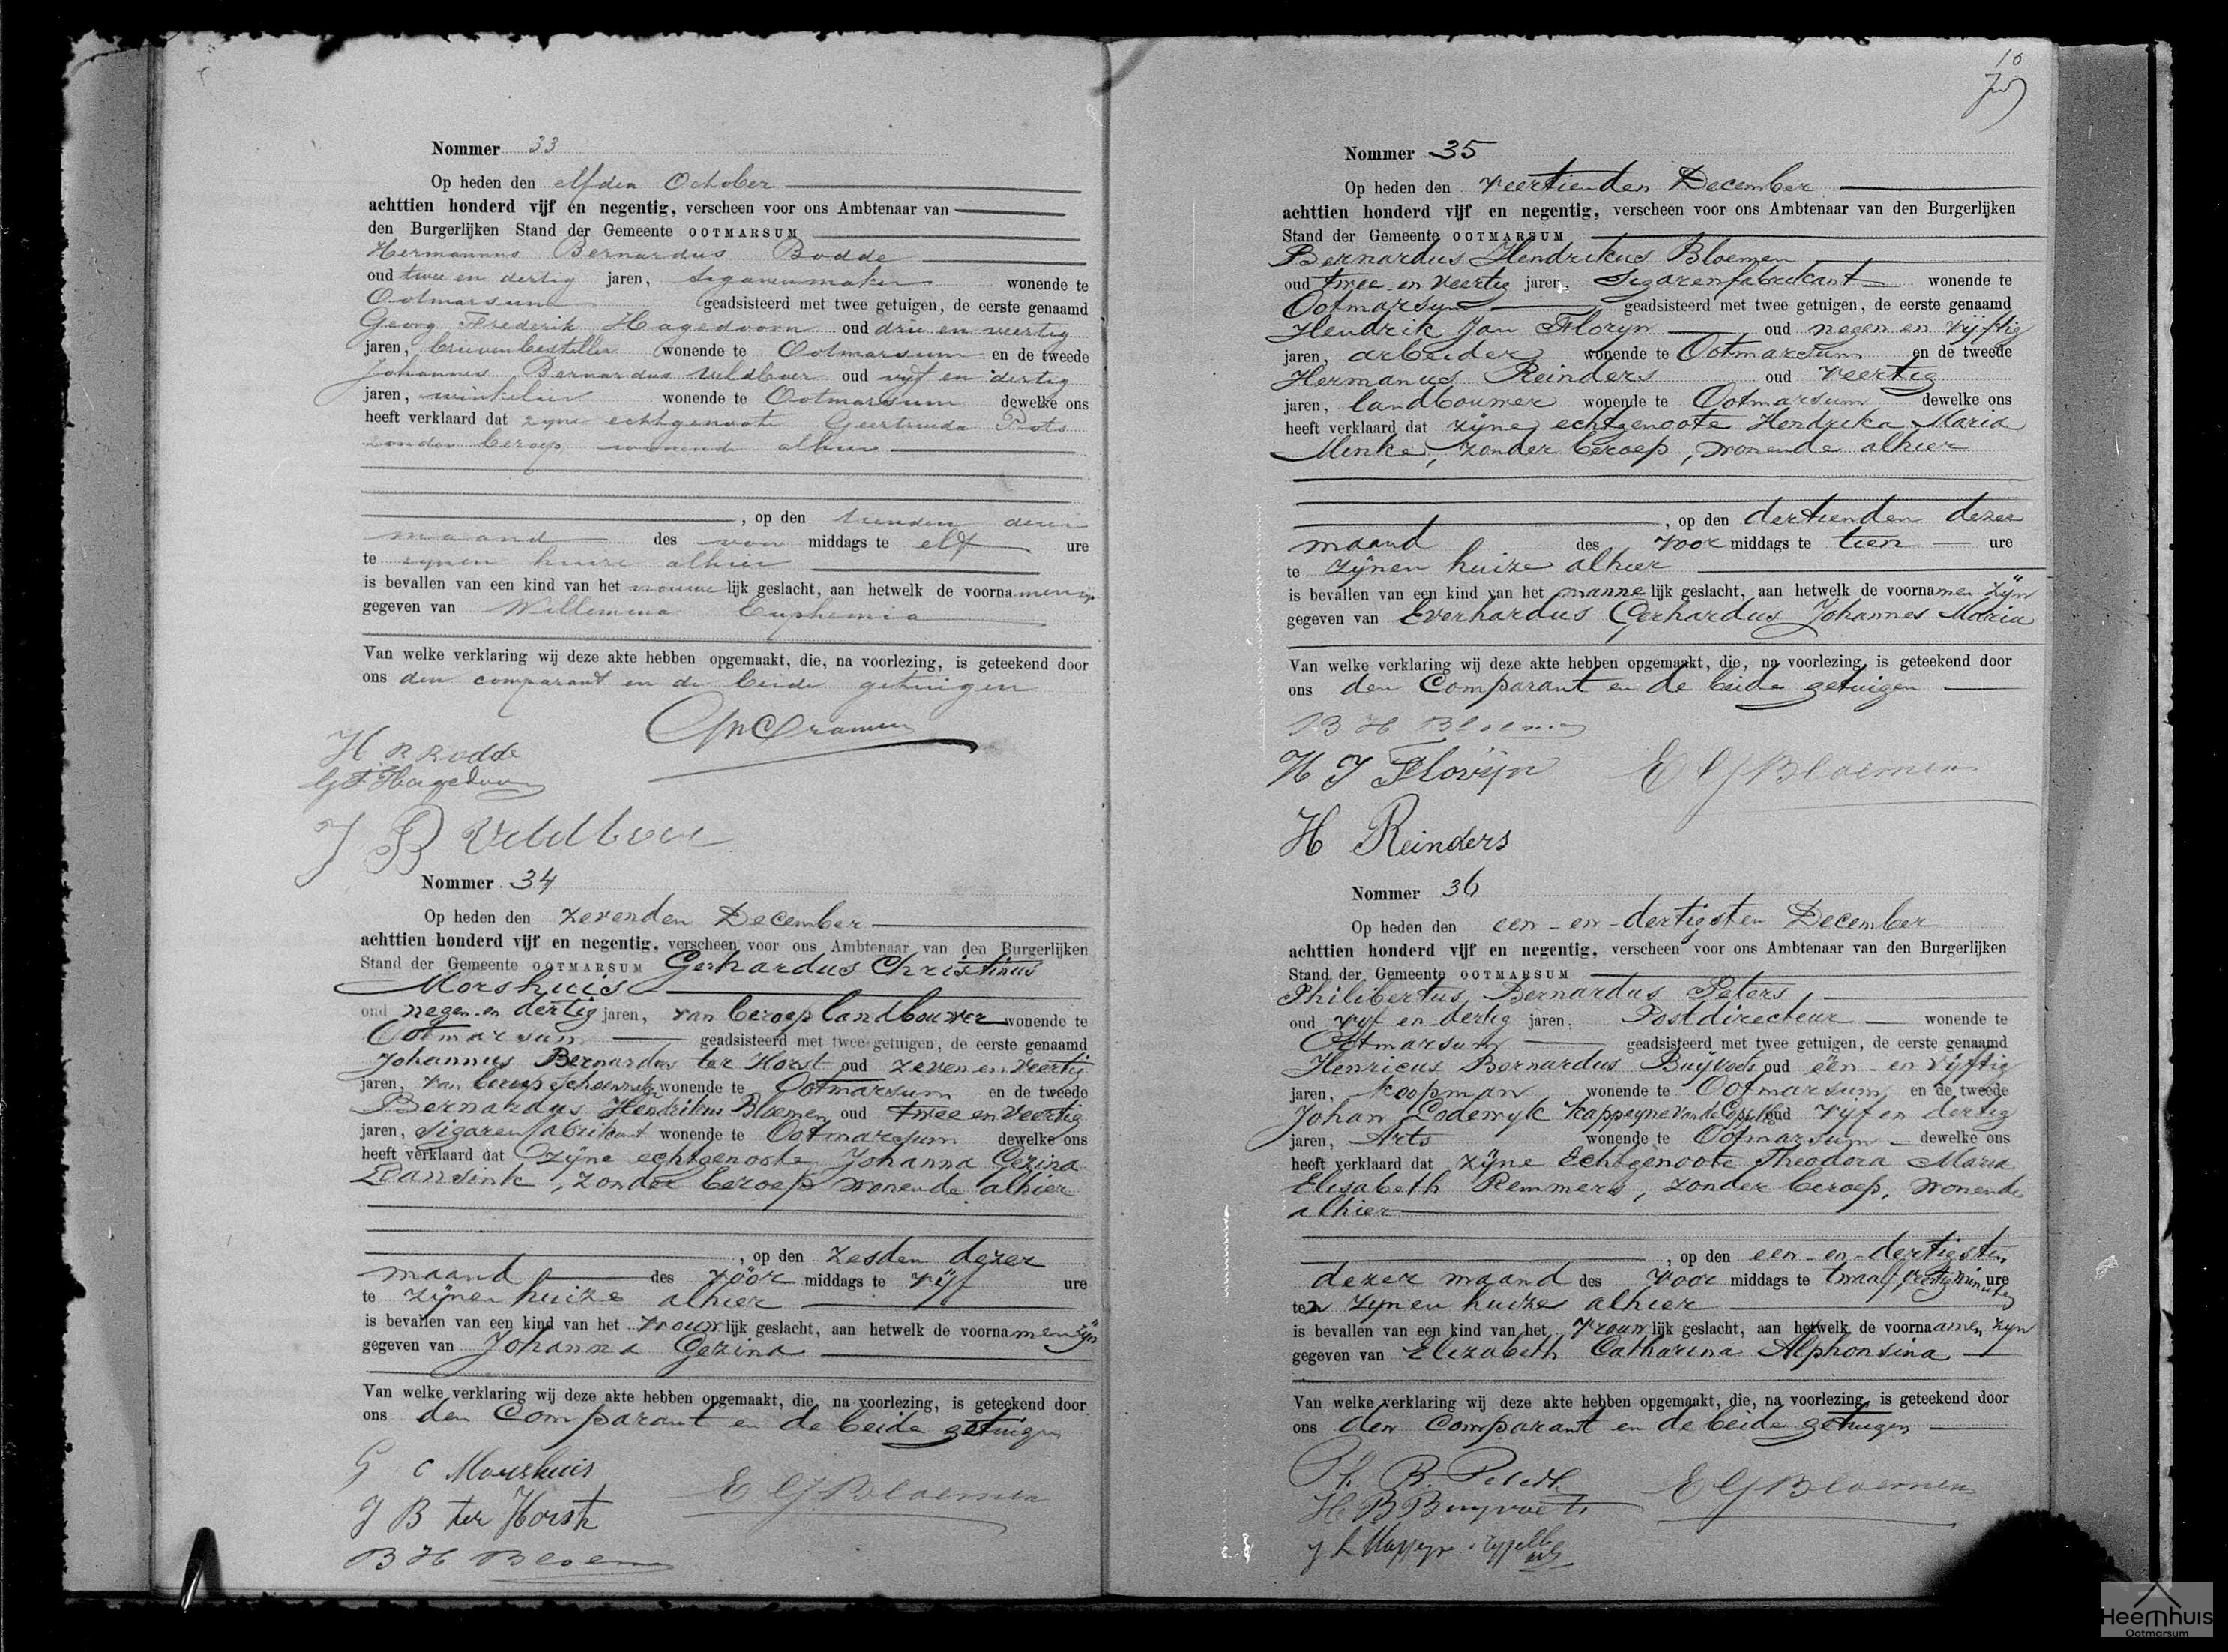 Nommer 33
Op heden den elfden October
achttien honderd vijf en negentig, verscheen voor ons Ambtenaar van
den Burgerlijken Stand der Gemeente OOTMARSUM
Hermannus Bernardus Bodde
oud twee en dertig jaren, sigarenmaker wonende te
Ootmarsum geadsisteerd met twee getuigen, de eerste genaamd
Georg Frederik Hagedoorn oud drie en veertig
jaren, brievenbesteller wonende te Ootmarsum en de tweede
Johannes Bernardus Veldboer oud vijf en dertig
jaren, winkelier wonende te Ootmarsum dewelke ons
heeft verklaard dat zyne echtgenoote Geertruida Pots
zonder beroep wonende alhier
, op den tienden dezer
maand des voor middags te elf ure
te zynen huize alhier
is bevallen van een kind van het vrouwe lijk geslacht, aan hetwelk de voornamen zijn
gegeven van Willemina Euphemia
Van welke verklaring wij deze akte hebben opgemaakt, die, na voorlezing, is geteekend door
ons den comparant en de beide getuigen
H B Bodde
G F Hagedoorn
J B Veldboer
Nommer 34
Op heden den zevenden December
achttien honderd vijf en negentig, verscheen voor ons Ambtenaar van den Burgerlijken
Stand der Gemeente OOTMARSUM Gerhardus Christinus
Morshuis
oud negen en dertig jaren, van beroep landbouwer wonende te
Ootmarsum geadsisteerd met twee getuigen, de eerste genaamd
Johannus Bernardus ter Horst oud zeven en veertig
jaren, van beroep schoenmaker wonende te Ootmarsum en de tweede
Bernardus Hendrikus Bloemen oud twee en veertig
jaren, sigarenfabrikant wonende te Ootmarsum dewelke ons
heeft verklaard dat zijne echtgenoote Johanna Gezina
Lansink, zonder beroep wonende alhier
, op den zesden dezer
maand des vóór middags te vijf ure
te zijnen huize alhier
is bevallen van een kind van het vrouw lijk geslacht, aan hetwelk de voornamen zijn
gegeven van Johanna Gezina
Van welke verklaring wij deze akte hebben opgemaakt, die, na voorlezing, is geteekend door
ons den Comparant en de beide getuigen
G C Morshuis
J B ter Horst
E G J Bloemen
B H Bloemen
10
Nommer 35
Op heden den veertienden December
achttien honderd vijf en negentig, verscheen voor ons Ambtenaar van den Burgerlijken
Stand der Gemeente OOTMARSUM
Bernardus Hendrikus Bloemen
oud twee en veertig jaren, Sigarenfabrikant wonende te
Ootmarsum geadsisteerd met twee getuigen, de eerste genaamd
Hendrik Jan Floryn oud negen en vijftig
jaren, arbeider wonende te Ootmarsum en de tweede
Hermanus Reinders oud veertig
jaren, landbouwer wonende te Ootmarsum dewelke ons
heeft verklaard dat zijne echtgenoote Hendrika Maria
Menke, zonder beroep, wonende alhier
, op den dertienden dezer
maand des voor middags te tien ure
te zijnen huize alhier
is bevallen van een kind van het manne lijk geslacht, aan hetwelk de voornamen zijn
gegeven van Everhardus Gerhardus Johannes Maria
Van welke verklaring wij deze akte hebben opgemaakt, die, na voorlezing, is geteekend door
ons den Comparant en de beide getuigen
B H Bloemen
H J Florijn E G J Bloemen
H Reinders
Nommer 36
Op heden den een en dertigsten December
achttien honderd vijf en negentig, verscheen voor ons Ambtenaar van den Burgerlijken
Stand der Gemeente OOTMARSUM
Philibertus Bernardus Peters,
oud vijf en dertig jaren, Postdirecteur wonende te
Ootmarsum geadsisteerd met twee getuigen, de eerste genaamd
Henricus Bernardus Buijvoets oud één en vijftig
jaren, koopman wonende te Ootmarsum en de tweede
Johan Lodewyk Kappeyne van de Copello oud vijf en dertig
jaren, Arts wonende te Ootmarsum dewelke ons
heeft verklaard dat zijne Echtgenoote Theodora Maria
Elisabeth Remmers, zonder beroep, wonende
alhier
, op den een en dertigsten
dezer maand des voor middags te twaalf, veertig minuten ure
ten zynen huize alhier
is bevallen van een kind van het vrouw lijk geslacht, aan hetwelk de voornaamen zyn
gegeven van Elizabeth Catharina Alphonsina
Van welke verklaring wij deze akte hebben opgemaakt, die, na voorlezing, is geteekend door
ons den comparant en de beide getuigen
Ph. B. Peters
H B Buyvoets E G J Bloemen
Heemhuis
Ootmarsum